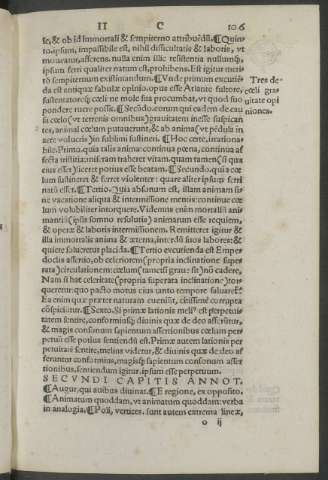 II C 106
se, & ob id immortali & sempiterno attribuēdū. ¶Quin-
to. ipsum, impassibile est, nihil difficultatis & laboris, vt
moueatur, asserens. nulla enim illic resistentia nullumq̃,
ipsum ferri qualiter natum est, prohibens. Est igitur meri-
tò sempiternum existimandum. ¶Vnde primum excutiē-
da est antiquæ fabulæ opinio. opus esse Atlante fultore,
sustentatoreq̃ cœli: ne mole sua procumbat, vt quod suo
pondere ruere possit. ¶Secūdo. eorum qui eadem de cau
sa cœlo (vt terrenis omnibus) grauitatem inesse suspican
tes, animal cœlum putauerunt: & ab anima (vt pēdula in
aere volucris) in sublimi sustineri. ¶Hoc certè, irrationa-
bile. Primo. quia talis anima: continua pœna, continua af
fecta tristitia, miseram traheret vitam. quam tamen (si qua
eius esset) liceret potius esse beatam. ¶Secundo. quia cœ
lum sustineret & ferret violenter: quare aliter ipsum ferri
natū esset. ¶Tertio. Quia absonum est, illam animam si-
ne vacatione aliqua & intermissione mentis: continue cœ
lum volubiliter intorquere. Videmus enim mortaliū ani
mantiū (ipsis somno resolutis) animarum esse requiem,
& operæ & laboris intermissionem. Remitteret igitur &
illa immortalis anima & æterna, interdū suos labores: &
quiete solueretur placida. ¶Tertio excutienda est Empe-
doclis assertio, ob celeriorem (propria inclinatione supe-
rata) circulationem: cœlum (tametsi graue sit) nō cadere.
Nam si hac celeritate (propria superata inclinatione) tor-
queretur: quo pacto motus eius tanto tempore saluaret̃.
Ea enim quæ præter naturam eueniūt, citissimè corrupta
cōspiciūt̃. ¶Sexto. Si primæ lationis meliꝰ est perpetui-
tatem sentire, conformiusq̃ diuinis quæ de deo asserūtur,
& magis consonum sapientum assertionibus: cœlum per-
petuū esse potius sentiendū est. Primæ autem lationis per
petuitatē sentire, melius videtur, & diuinis quæ de deo as
seruntur conformius, magisq̃ sapientum consonum asser
tionibus. sentiendum igitur, ipsum esse perpetuum.
SECVNDI CAPITIS ANNOT.
¶Augur, qui auibus diuinat. ¶E regione, ex opposito.
¶Animatum quoddam, vt animatum quoddam: verba
in analogia. ¶Poli, vertices. sunt autem extrema lineæ,
o ij
Tres de-
cœli gra-
uitate opi
niones.